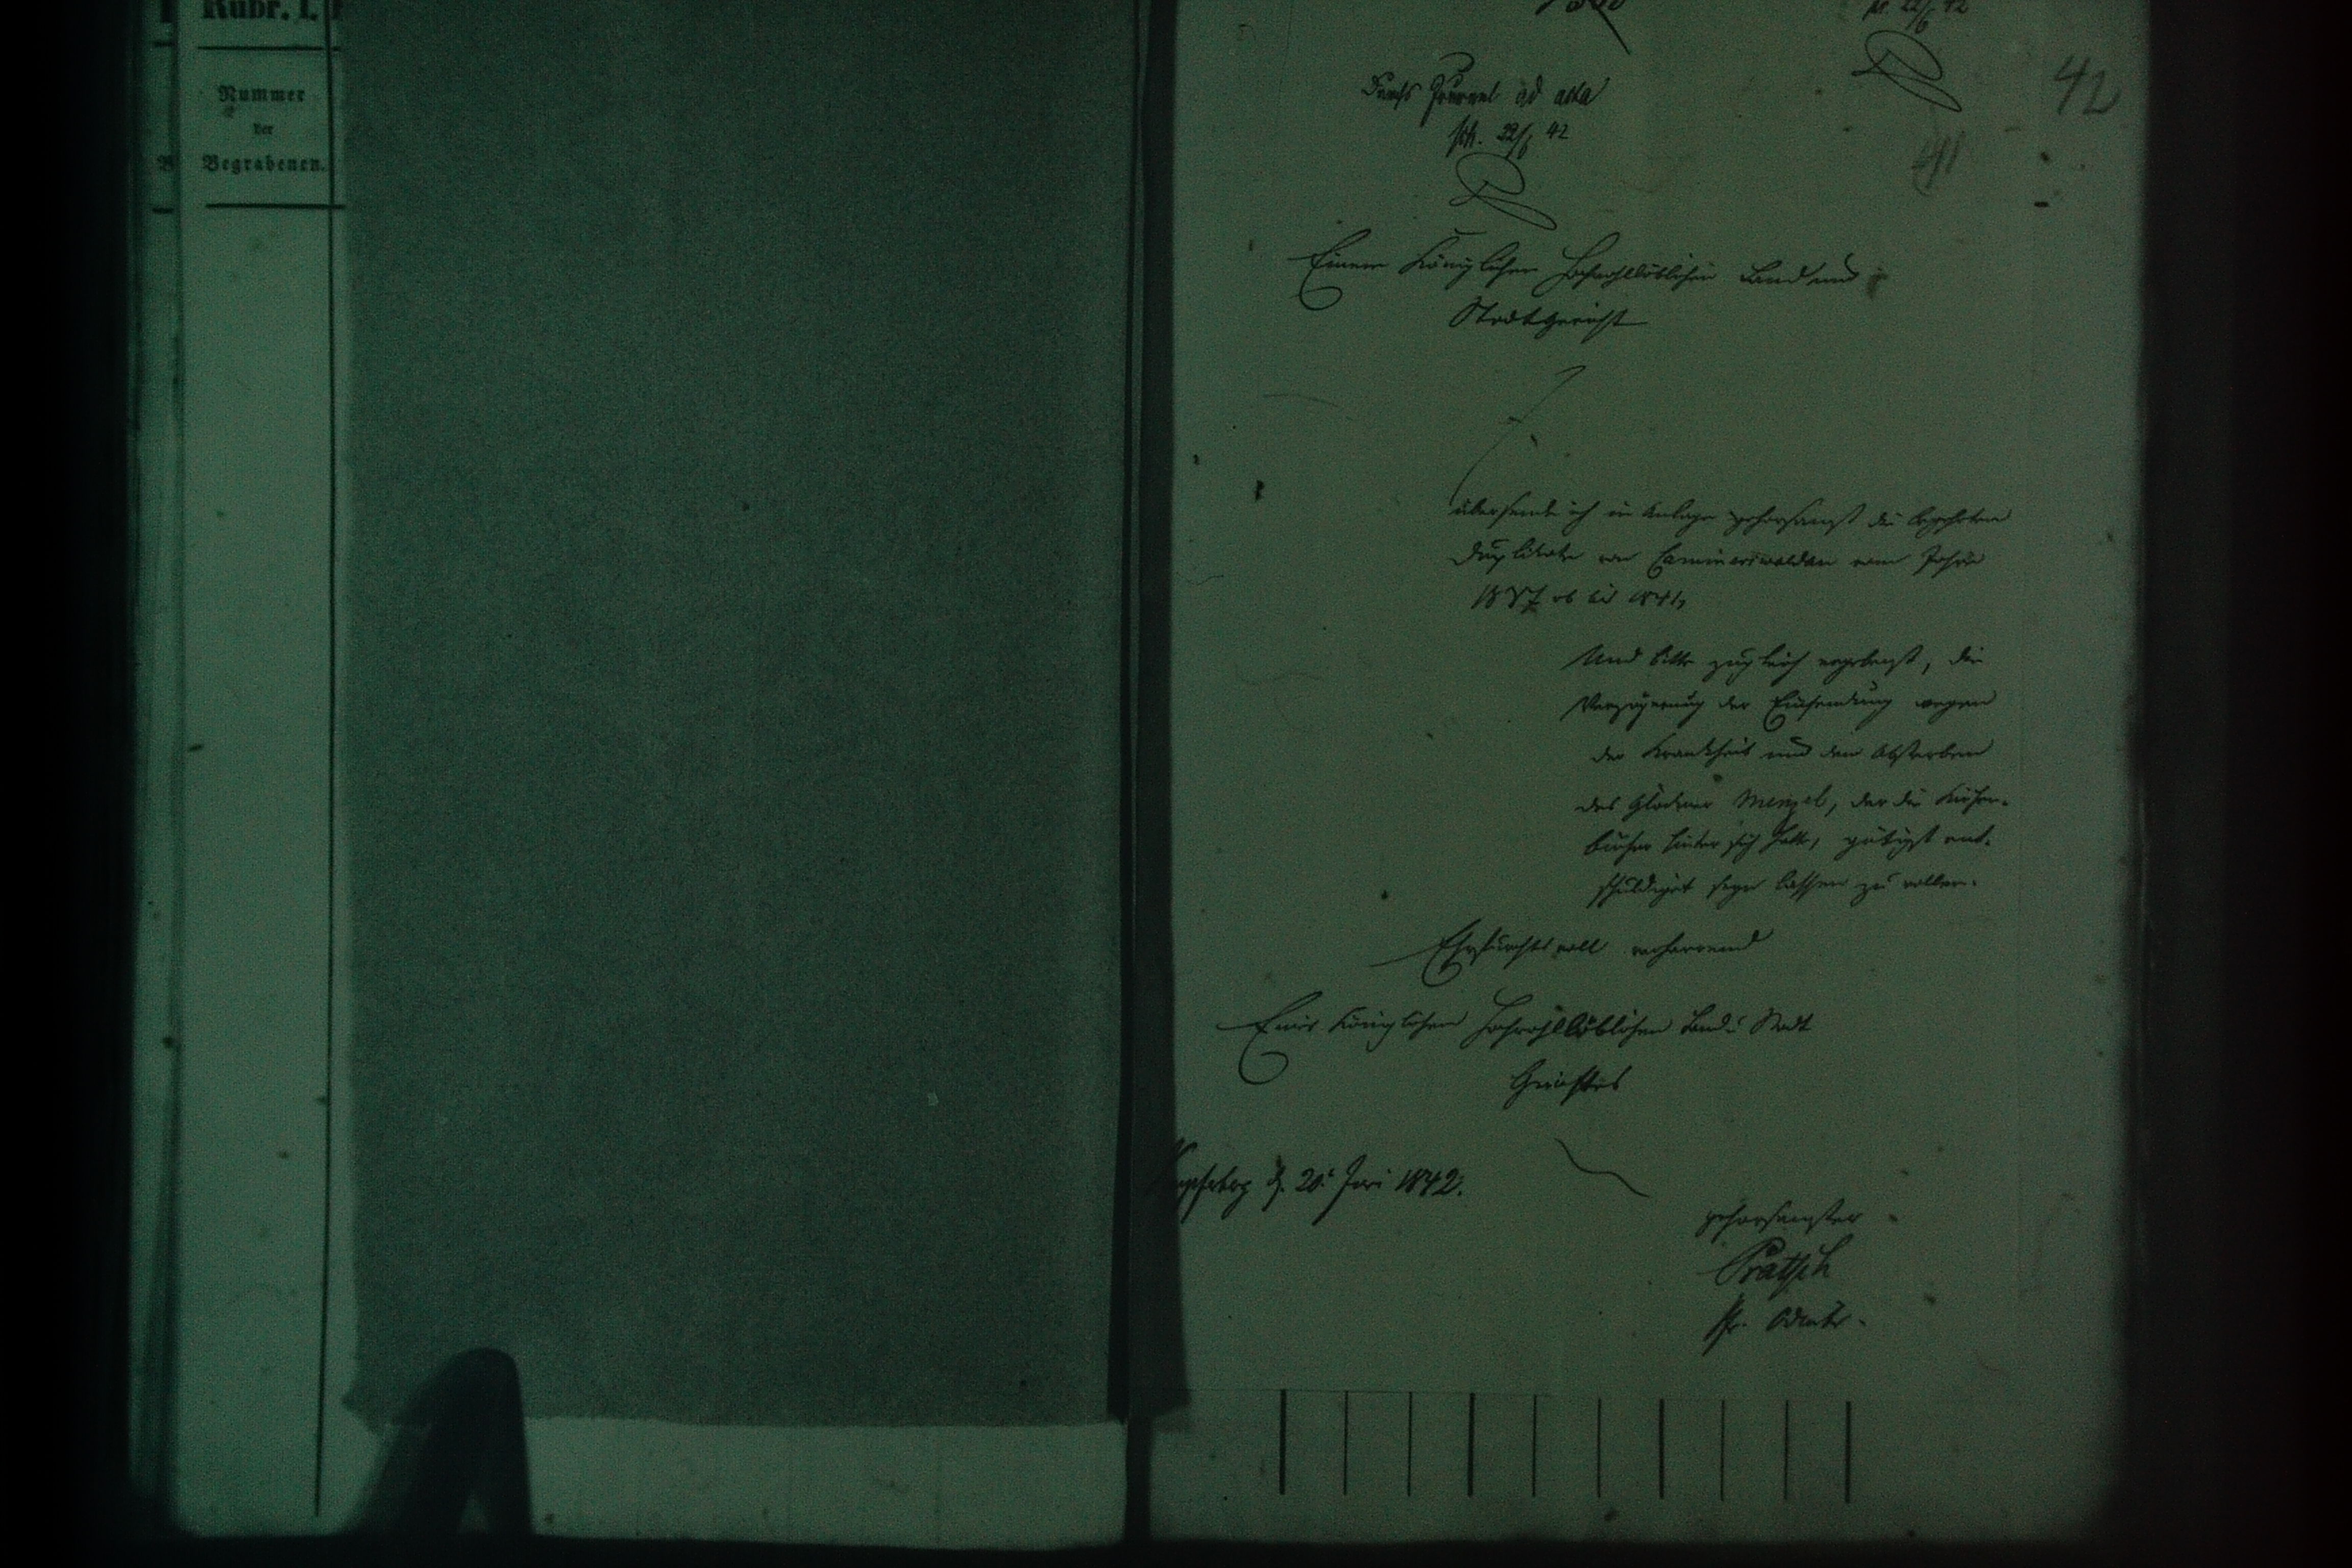 Rubr. I.
Nummer
der
Begrabenen.
42
41
Durchs Journal ad acta
22/6 42
Einem Königlichen Hochwohllöblichen Land und
Stadtgericht
übersende ich in Anlage gehorsamst die begehrten
Duplikate von Cammerswaldau vom Jahre
1837 ab bis 1841,
Und bitte zugleich ergebenst, die
Verzögerung der Einsendung wegen
der Krankheit und dem Absterben
des Glöckner Menzel, der die Kirchen-
bücher hinter sich hatte, gütigst ent-
schuldigt seyn lassen zu wollen.
Ehrfurchtsvoll verharrend
Eines Königlichen Hochwohllöblichen Land u Stadt
Gerichtes
d. 20. Juni 1842.
gehorsamster
Pratsch
Pf. Admtr.